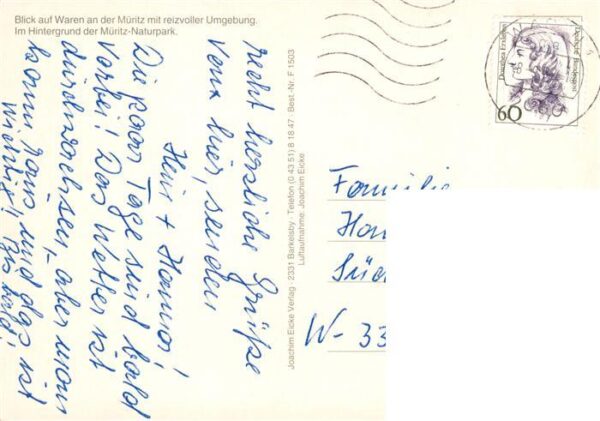 Blick auf Waren an der Müritz mit reizvoller Umgebung.
Im Hintergrund der Müritz-Naturpark.
recht herzliche Grüße
von hier, senden
Heini + Hanna!
Die paar Tage sind bald
vorbei! Das Wetter ist
durchwachsen, aber man
kann raus und das ist
wichtig! Bis bald!
Joachim Eicke Verlag · 2331 Barkelsby · Telefon (0 43 51) 8 18 47 · Best.-Nr. F 1503
Luftaufnahme: Joachim Eicke
Deutsche Bundespost
Dorothea Erxleben
60
Familie
Han
W-33